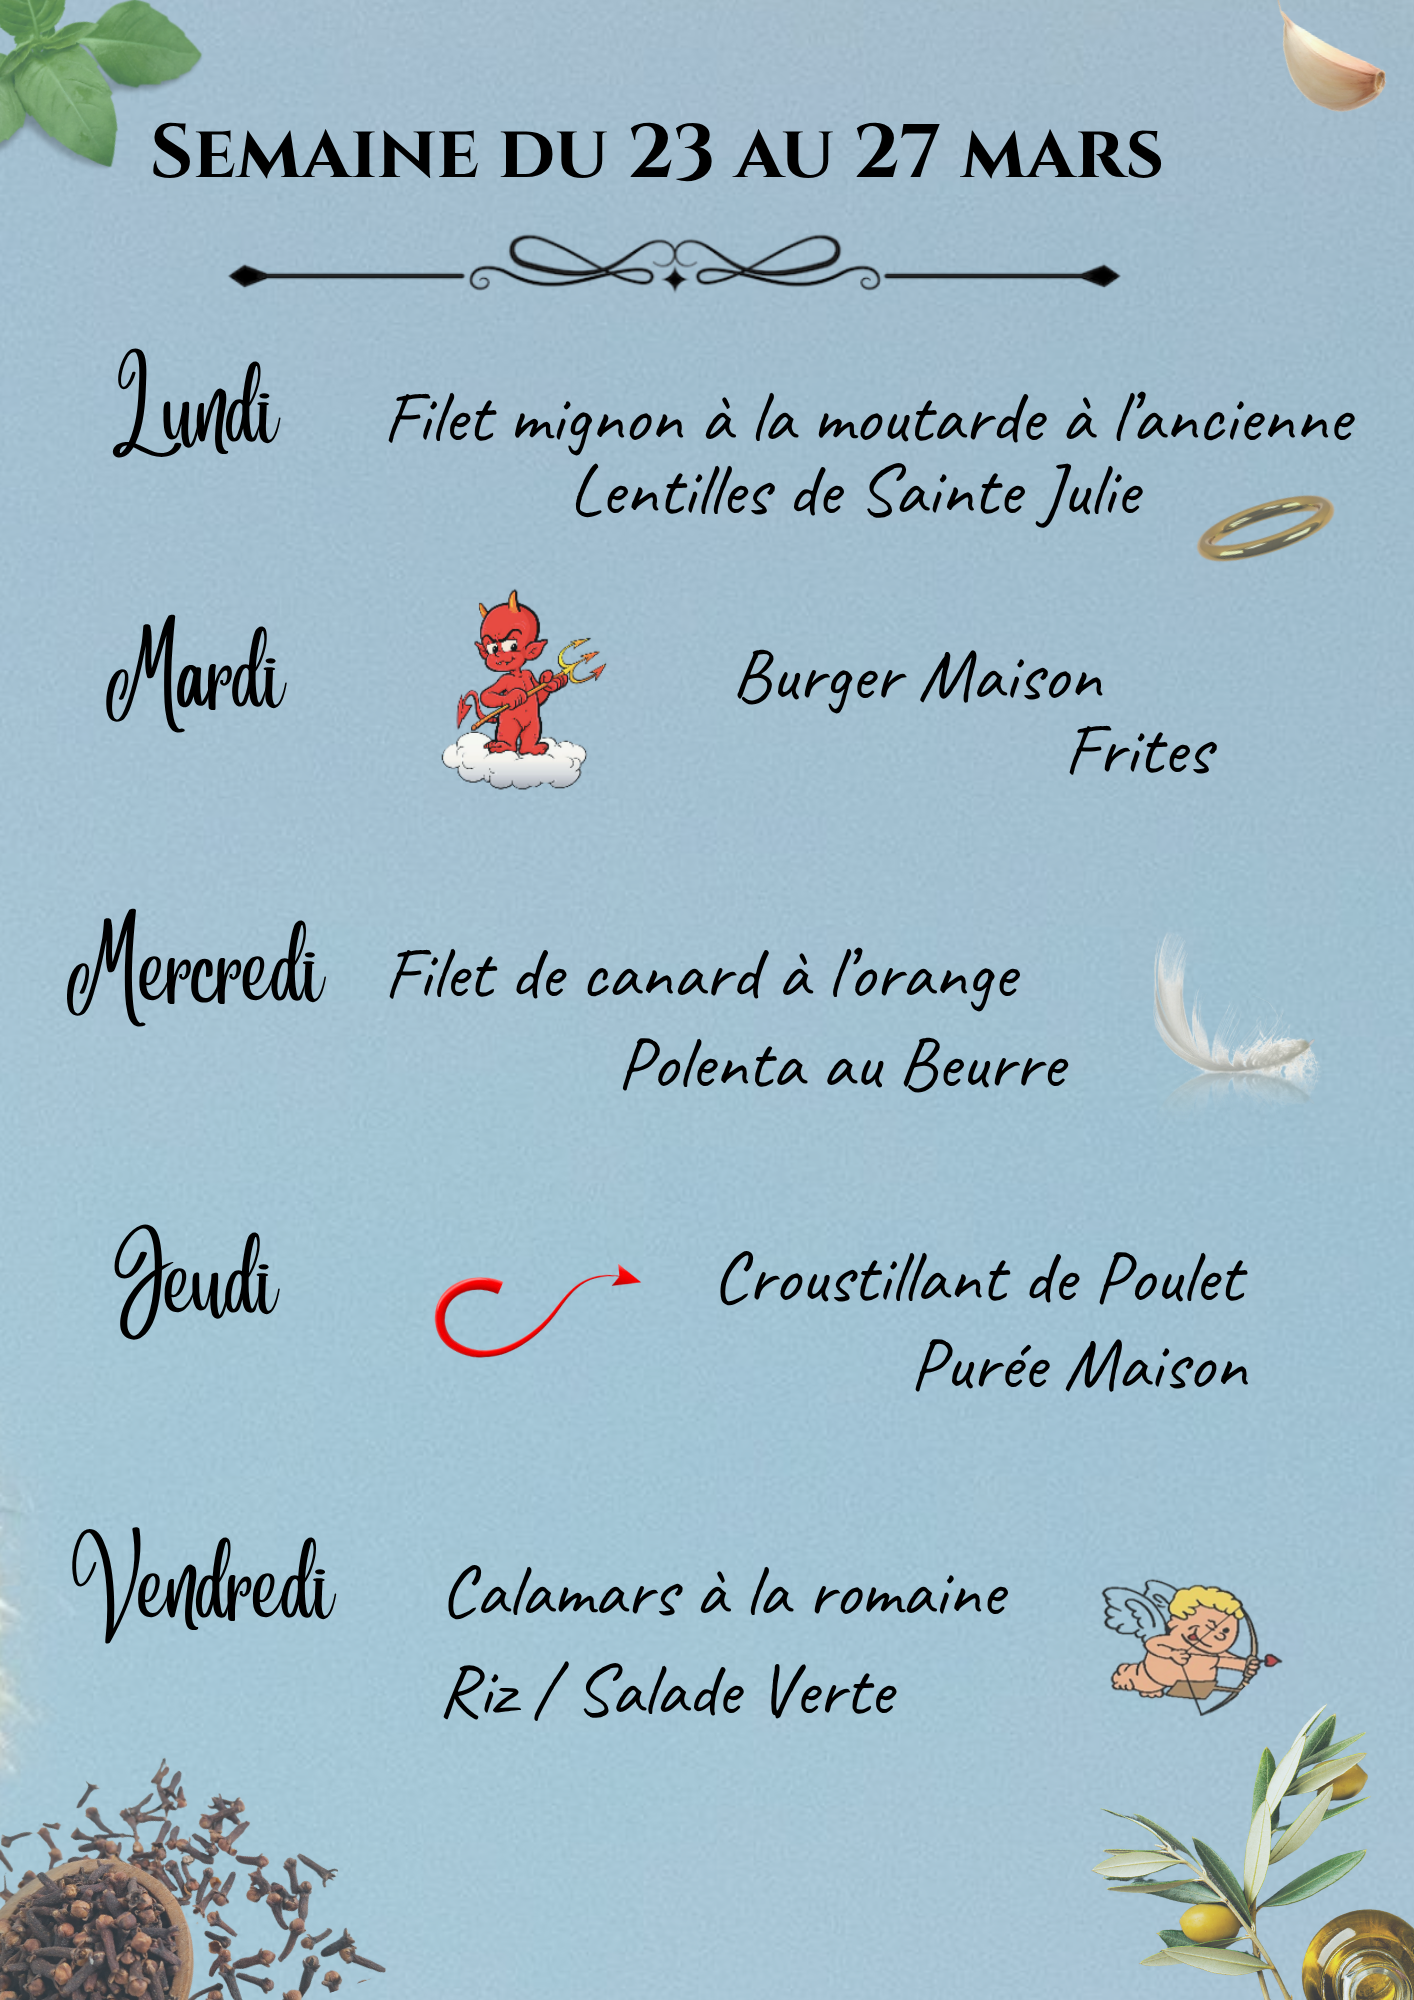 Semaine du 23 au 27 mars
Lundi
Filet mignon à la moutarde à l'ancienne
Lentilles de Sainte Julie
Mardi
Burger Maison
Frites
Mercredi
Filet de canard à l'orange
Polenta au Beurre
Jeudi
Croustillant de Poulet
Purée Maison
Vendredi
Calamars à la romaine
Riz / Salade Verte